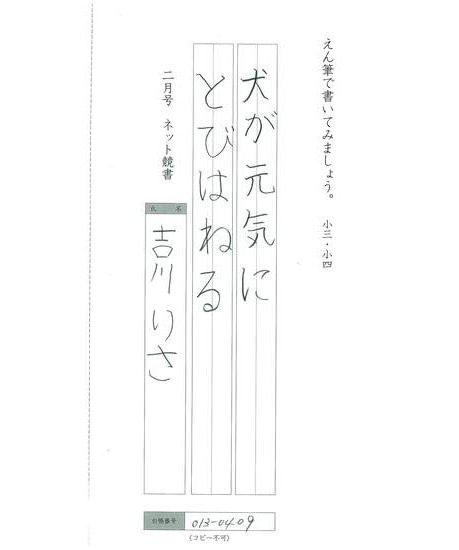 えん筆で書いてみましょう。 小三・小四
犬が元気に
とびはねる
二月号 ネット競書
氏 名
吉川 りさ
台帳番号 013-0409
(コピー不可)